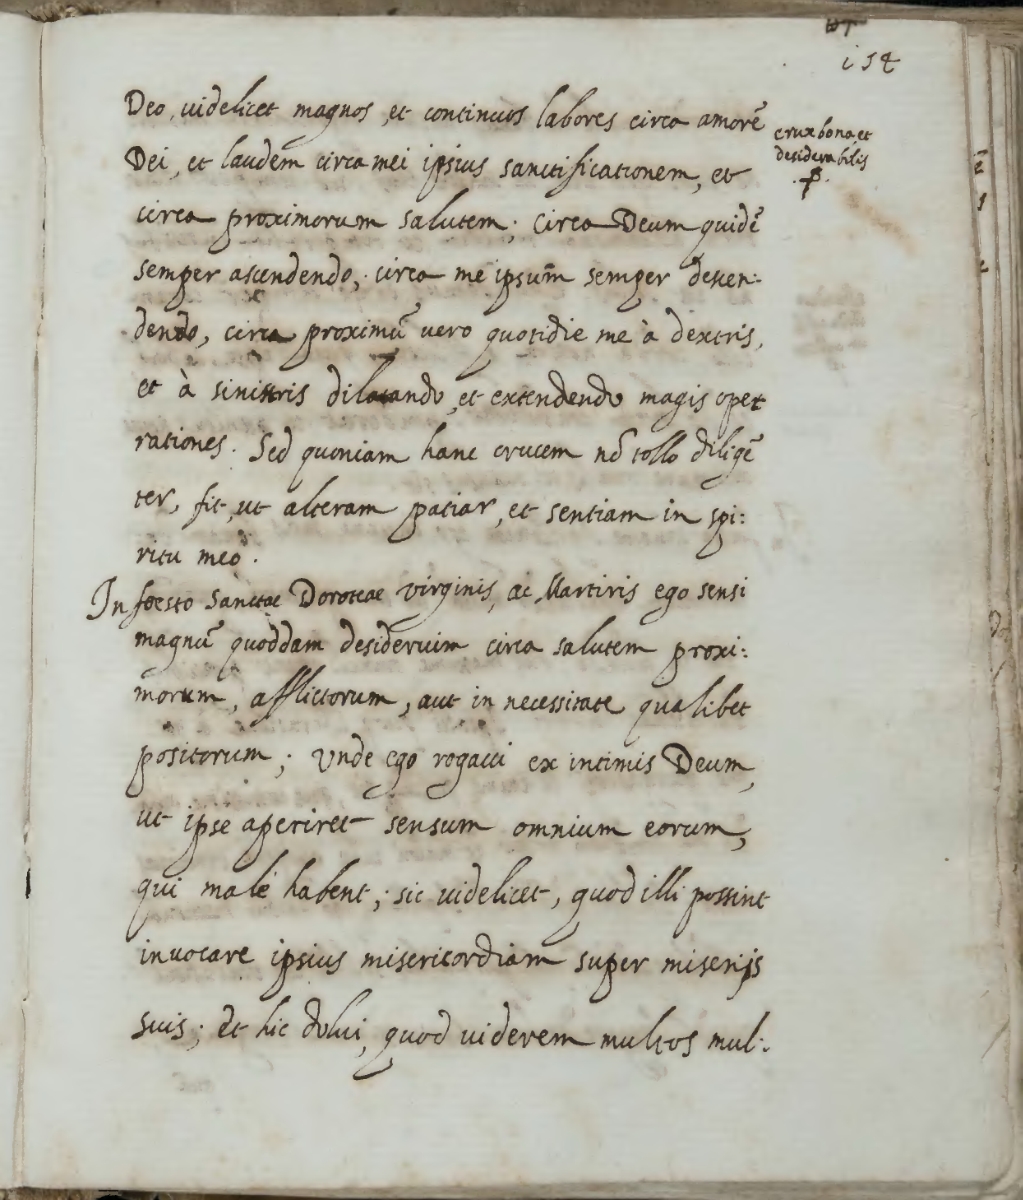 154
Deo, uidelicet magnos, et continuos labores circa amorē
Dei, et laudem circa mei ipsius sanctificationem, et
circa proximorum salutem; circa Deum quidē
semper ascendendo, circa me ipsum semper descen-
dendo, circa proximū vero quotidie me à dextris,
et à sinistris dilatando, et extendendo magis ope
rationes. Sed quoniam hanc crucem nō tollo diligē
ter, fit, ut alteram patiar, et sentiam in spi:
ritu meo.
In foesto Sanctae Doroteae virginis, ac Martiris ego sensi
magnū quoddam desiderium circa salutem proxi:
morum, afflictorum, aut in necessitate qualibet
positorum; Vnde ego rogaui ex intimis Deum,
ut ipse aperiret sensum omnium eorum,
qui malè habent; sic uidelicet, quod illi possint
inuocare ipsius misericordiam super miserijs
suis; et hic dolui, quod uiderem multos mul:
crux bona et
desiderabilis